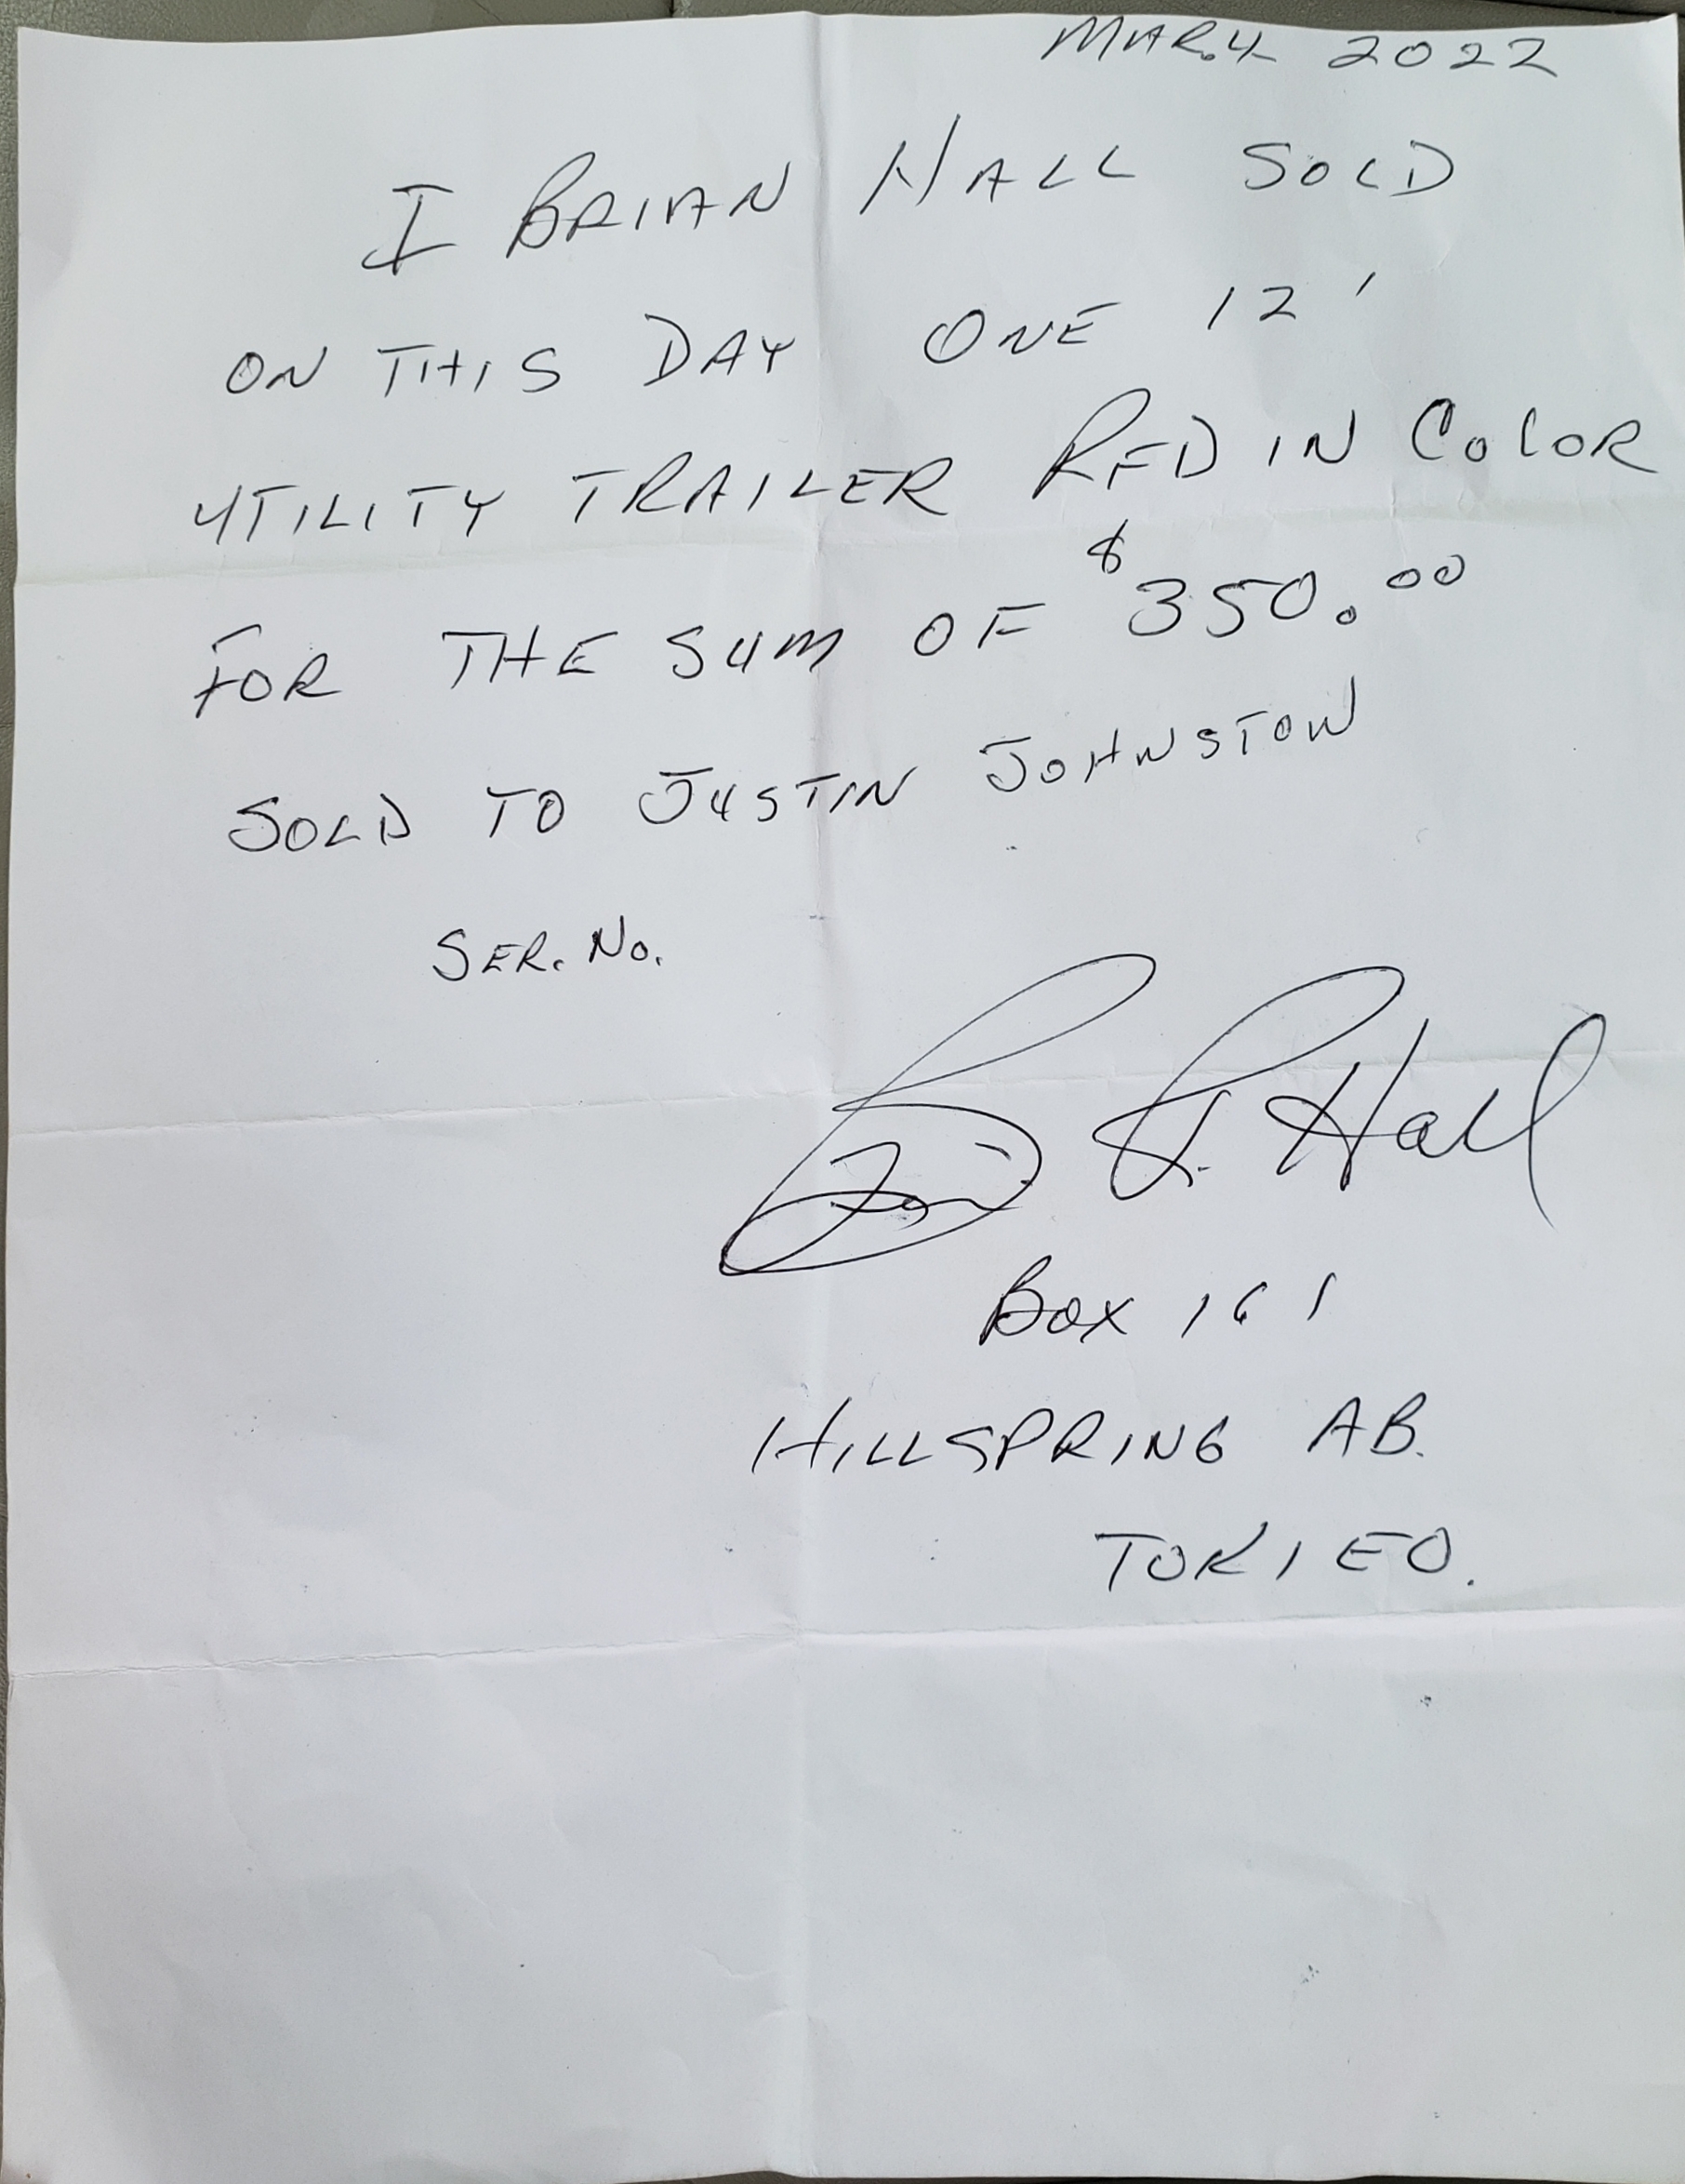 MAR.4 2022
I BRIAN HALL SOLD
ON THIS DAY ONE 12'
UTILITY TRAILER RED IN COLOR
FOR THE SUM OF $350.00
SOLD TO JUSTIN JOHNSTON
SER. No.
B R. Hall
BOX 161
HILLSPRING AB.
TOK 1EO.